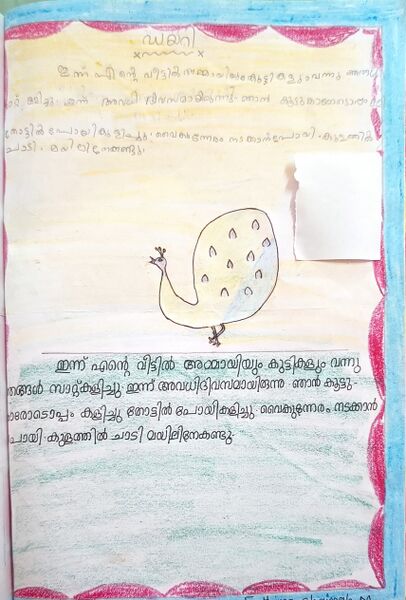 ഡയറി
ഇന്ന് എന്റെ വീട്ടിൽ അമ്മായിയുംകുട്ടികളുംവന്നു
കളിച്ചു ഇന്ന് അവധി ദിവസമായിരുന്നു ഞാൻ
തോട്ടിൽ പോയികുളിച്ചു. വൈകുന്നേരം നടക്കാൻപോയി. കുളത്തിൽ
ചാടി. മയിലിനേകണ്ടു.
ഇന്ന് എന്റെ വീട്ടിൽ അമ്മായിയും കുട്ടികളും വന്നു
ഞങ്ങൾ സാറ്റ്കളിച്ചു. ഇന്ന് അവധിദിവസമായിരുന്നു. ഞാൻ കൂട്ടു-
കാരോടൊപ്പം കളിച്ചു തോട്ടിൽ പോയികളിച്ചു. വൈകുന്നേരം നടക്കാൻ
പോയി. കുളത്തിൽ ചാടി മയിലിനേകണ്ടു.